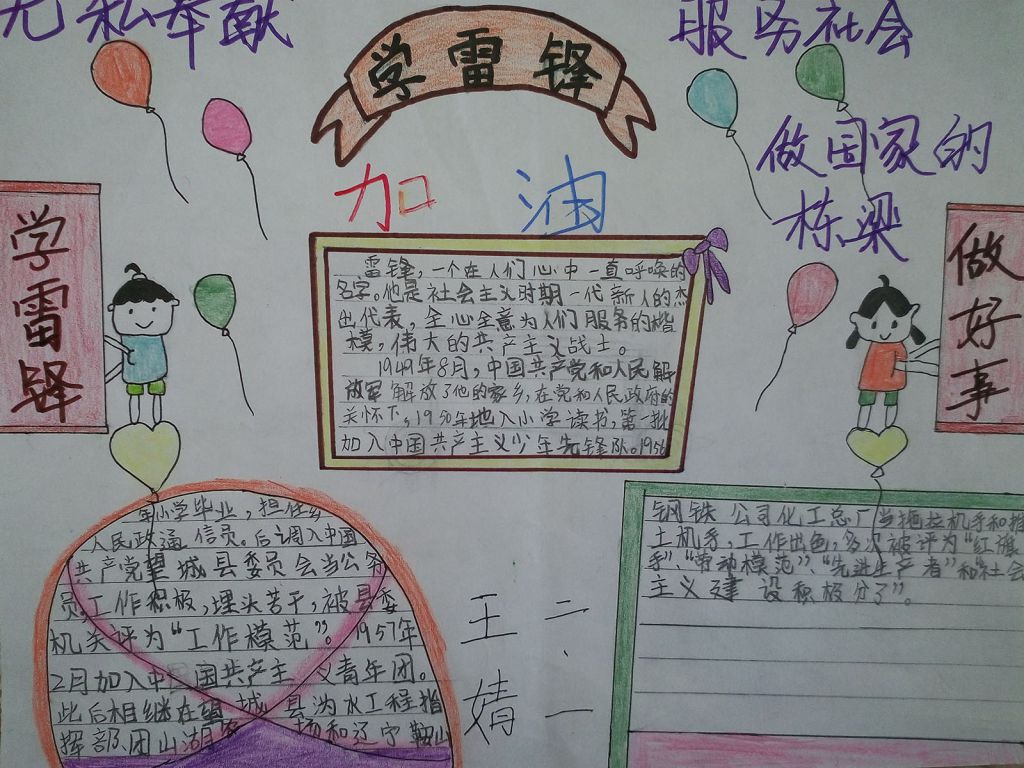 无私奉献
服务社会
学雷锋
做国家的
栋梁
加油
学雷锋
做好事
雷锋，一个在人们心中一直呼唤的
名字。他是社会主义时期一代新人的杰
出代表，全心全意为人们服务的楷
模，伟大的共产主义战士。
1949年8月，中国共产党和人民解
放军解放了他的家乡，在党和人民政府的
关怀下，1950年地入小学读书，第一批
加入中国共产主义少年先锋队。1956
年小学毕业，担任乡
人民政通信员。后调入中国
共产党望城县委员会当公务
员。工作积极，埋头苦干，被县委
机关评为“工作模范”。1957年
2月加入中国共产主义青年团。
此后相继在望城县沩水工程指
挥部、团山湖农场和辽宁鞍山
钢铁公司化工总厂当拖拉机手和推
土机手，工作出色，多次被评为“红旗
手”、“劳动模范”、“先进生产者”和“社会
主义建设积极分了”。
二.一
王婧